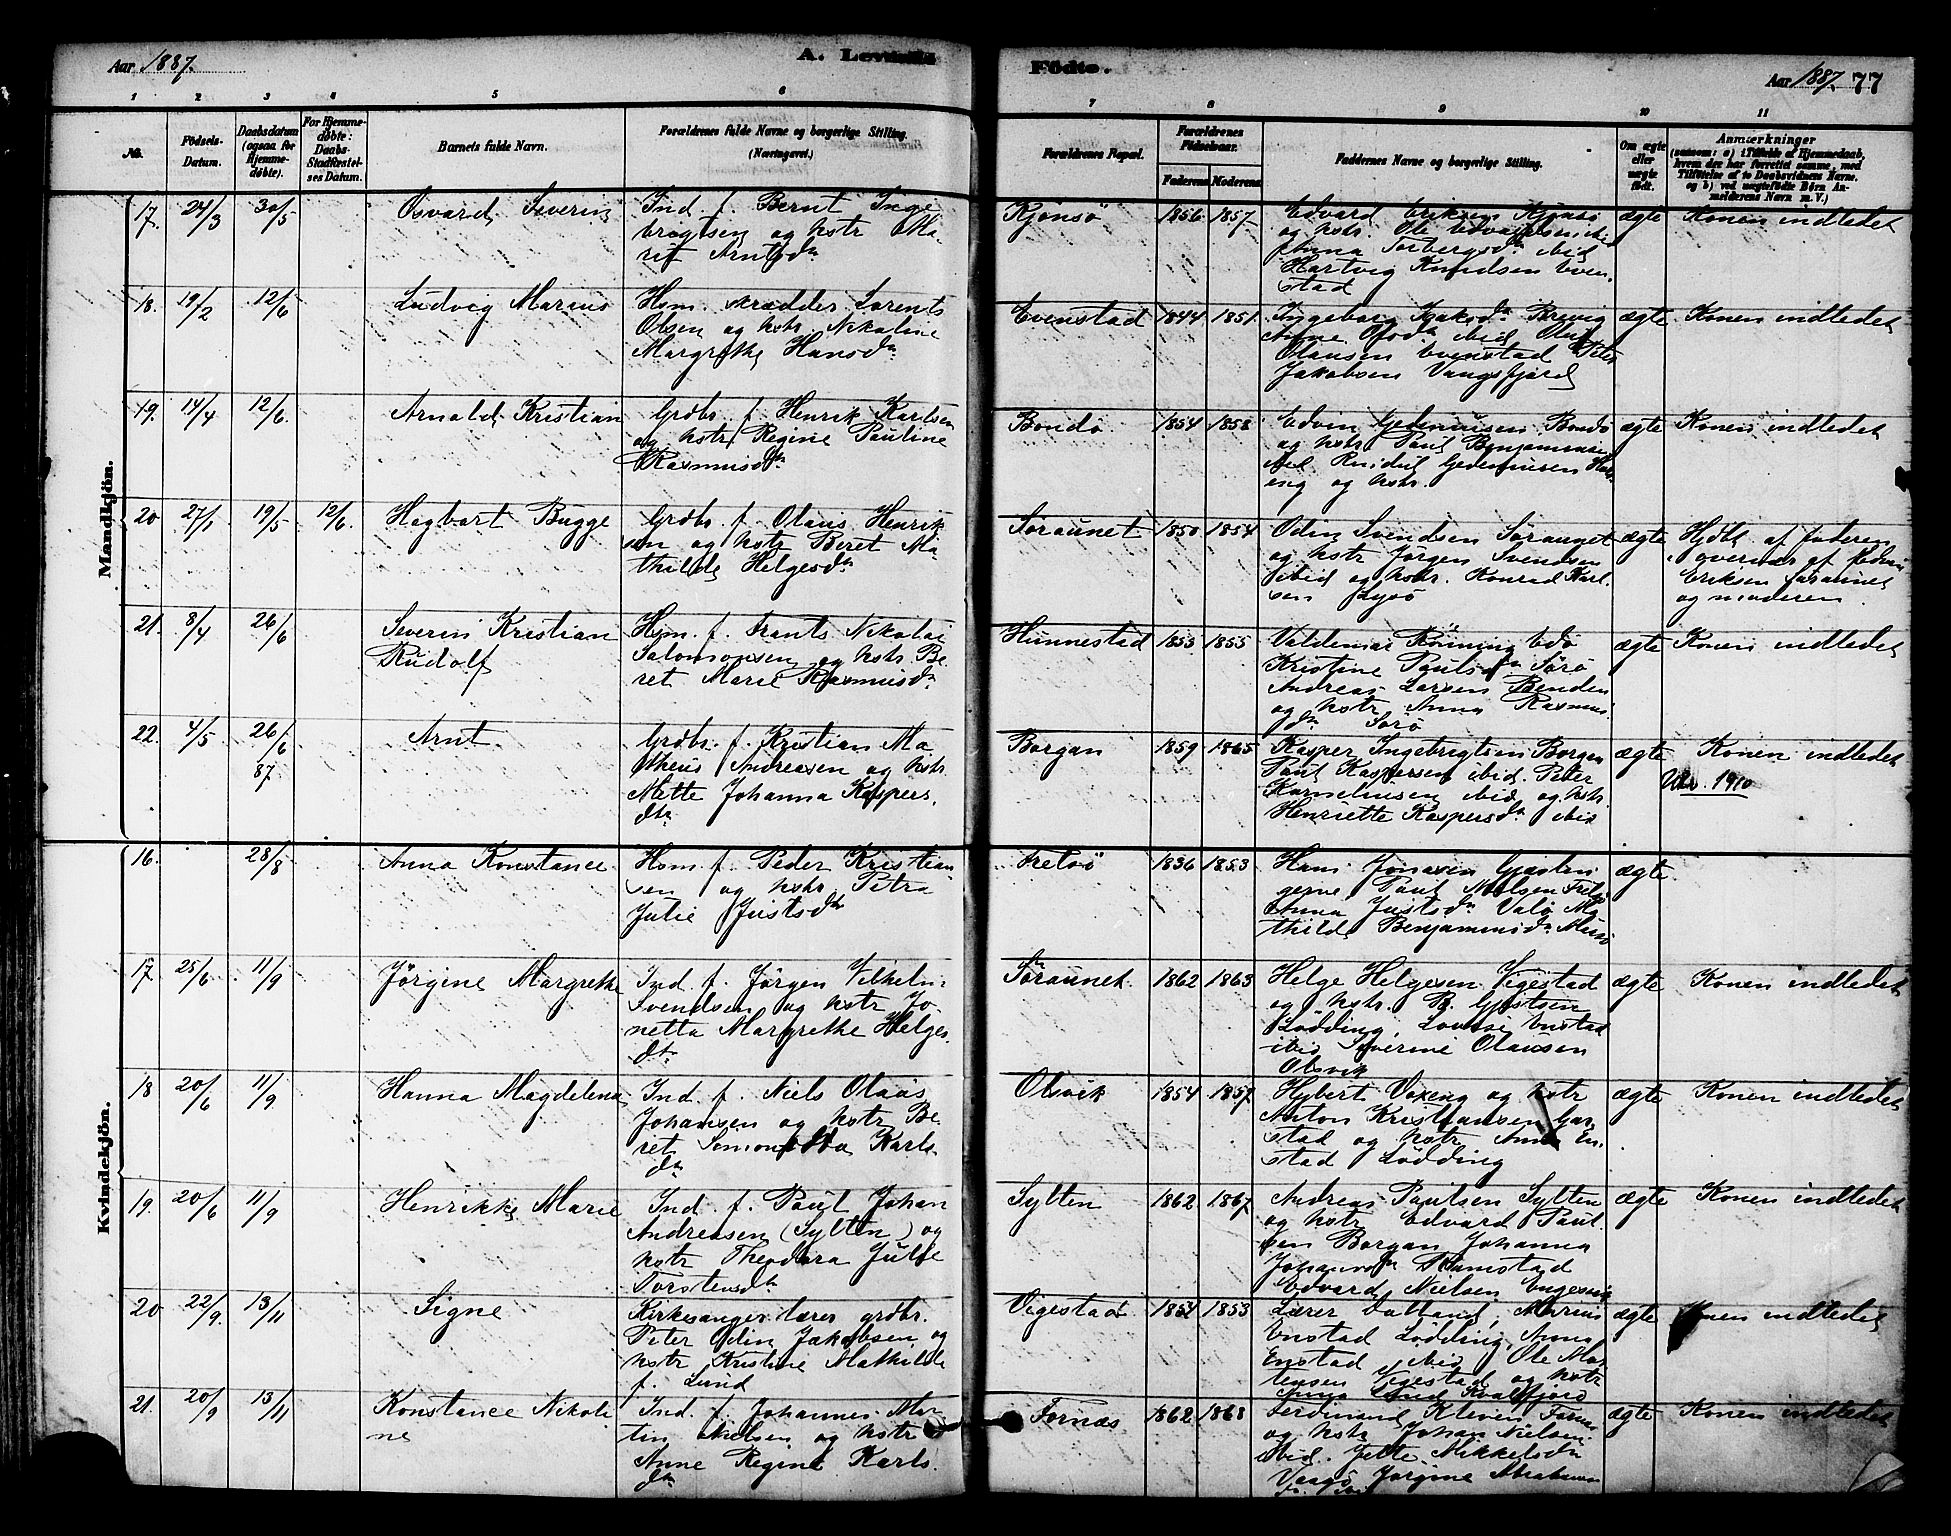 Aar 1887.
A. Levende
Födte.
Aar 1887. 77
1 2 3 4 5 6
7 8 9 10 11
No.
Födsels-Datum.
Daabsdatum (ogsaa for Hjemme-døbte).
For Hjemme-døbte: Daabs-Stadfæstel-ses Datum.
Barnets fulde Navn.
Forældrenes fulde Navne og borgerlige Stilling.
(Næringsvei.)
Forældrenes Bopæl.
Forældrenes Födselsaar.
Faderens Moderens
Faddernes Navne og borgerlige Stilling.
Om ægte eller uægte födt.
Anmærkninger
(saasom: a) i Tilfælde af Hjemmedaab, hvem der har forrettet samme, med Tilföielse af to Daabsvidners Navne, og b) ved uægtefödte Börn Anmelderens Navn m. V.)
Mandkjön.
17. 24/3 30/5 Osvard Severin
Ind. f. Bernt Inge
brigtsen og hstr Ma-
rit Arntsdtr
Kjönsö 1856 1857
Edvard Eriksen Kjönsö
og hstr. Ole
Anna Torbergsdtr ibid
Hartvig Knudsen Even
stad
ægte Konen indledet
18. 19/2 12/6 Ludvig Marius
Hsm. skrædder Lorents
Olsen og hstr. Nikoline
Margrethe Hansdtr
Evenstad 1844 1851
Ingeborg Isaksdtr Brevig
Anne Olsdtr ibid Oluf
Olausen Evenstad Peter
Jakobsen Vangsfjord
ægte Konen indledet
19. 14/4 12/6. Arnold Kristian
Grdbr. f. Henrik Karlsen
og hstr Regine Pauline
Rasmusdtr
Bondö 1854 1858
Edvin Gedeniusen Bondö
og hstr Paul Benjaminsen
ibid Gedeniusen
eng og hstr.
ægte Konen indledet
20 27/1 19/5 12/6. Hagbart Bugge
Grdbr. f. Olaus Henrik
sen og hstr Beret Ma
thilde Helgesdtr
Söraunet 1850 1854
Odin Svendsen Söraunet
og hstr Jörgen Svendsen
ibid og hstr. Konrad Karl-
sen Lysö
ægte Hjdbt af faderen,
overvær af
Eriksen Söraunet
og moderen.
21. 8/4 26/6 Severin Kristian
Rudolf
Hsm. f. Frants Nikolai
Salomonsen og hstr. Be
ret Marie Rasmusdtr
Hunnestad 1853 1855
Valdemar Rönning Edö
Kristine Paulsdtr Sörö
Andreas Larsen Benden
og hstr Anna Rasmus
dtr Sörö
ægte Konen indledet
22. 4/5 26/6 87. Arnt
Grdbr. f. Kristian Ma
theus Andreasen og hstr.
Mette Johanna Kaspers,
dtr
Borgan 1859 1865
Kasper Ingebrigtsen Borgan
Paul Kaspersen ibid. Peter
Korneliusen ibid og hstr.
Henriette Kaspersdtr ibid
ægte Konen indledet
1910
Kvindekjön.
16. 28/8 Anna Konstance
Hsm. f. Peder Kristian
sen og hstr Petra
Julie Justsdtr
Fretsö 1836 1853
Hans Jonasen
Paul Nielsen
Anna Justsdtr Valö Ma
thilde Benjaminsdtr
ægte
17. 25/6 11/9 Jörgine Margrethe
Ind. f. Jörgen Vilhelm
Svendsen og hstr Jo
netta Margrethe Helges
dtr
Söraunet. 1862 1863
Helge Helgesen Vegestad
og hstr. B. Gjertsen
Lödding, Lovise Enstad
ibid Severine Olausen
Olsvik
ægte Konen indledet
18 20/6 11/9 Hanna Magdelena
Ind. f. Niels Olaus
Johansen og hstr Be-
ret Simonetta Karls-
dtr
Olsvik 1854 1857
Hybert Voxeng og hstr
Anton Kristiansen Gar
stad og hstr Anna En
stad Lödding
ægte Konen indledet
19. 20/6 11/9 Henrikke Marie
Ind. f. Paul Johan
Andreasen (Sylten) og
hstr Theodora Julie
Torstensdtr
Sylten 1862 1867
Andreas Paulsen Sylten
og hstr Edvard Paul
sen Borgan Johanna
Johannesdtr Ramstad
Edvard Nielsen Engesvig
ægte Konen indledet
20 22/9. 13/11 Signe
Kirkesanger lærer grdbr.
Peter Odin Jakobsen og
hstr Kristine Mathilde
f. Lund
Vegestad 1854 1853
Lærer Dalland, Marius
Enstad Lödding, Anna
Enstad ibid Ole Mor
tensen Vegestad og hstr
Anna Lund Kvalfjord
ægte Konen indledet
21. 20/9 13/11 Konstance Nikoli
ne
Ind. f. Johannes Mar
tin Nielsen og hstr
Anne Regine Karls
dtr
Fornæs 1862 1868
Ferdinand Kleven
og hstr Johan Nielsen
ibid. Jette Mikkelsdtr
Vaagö Jörgine Abraham
ægte Konen indledet